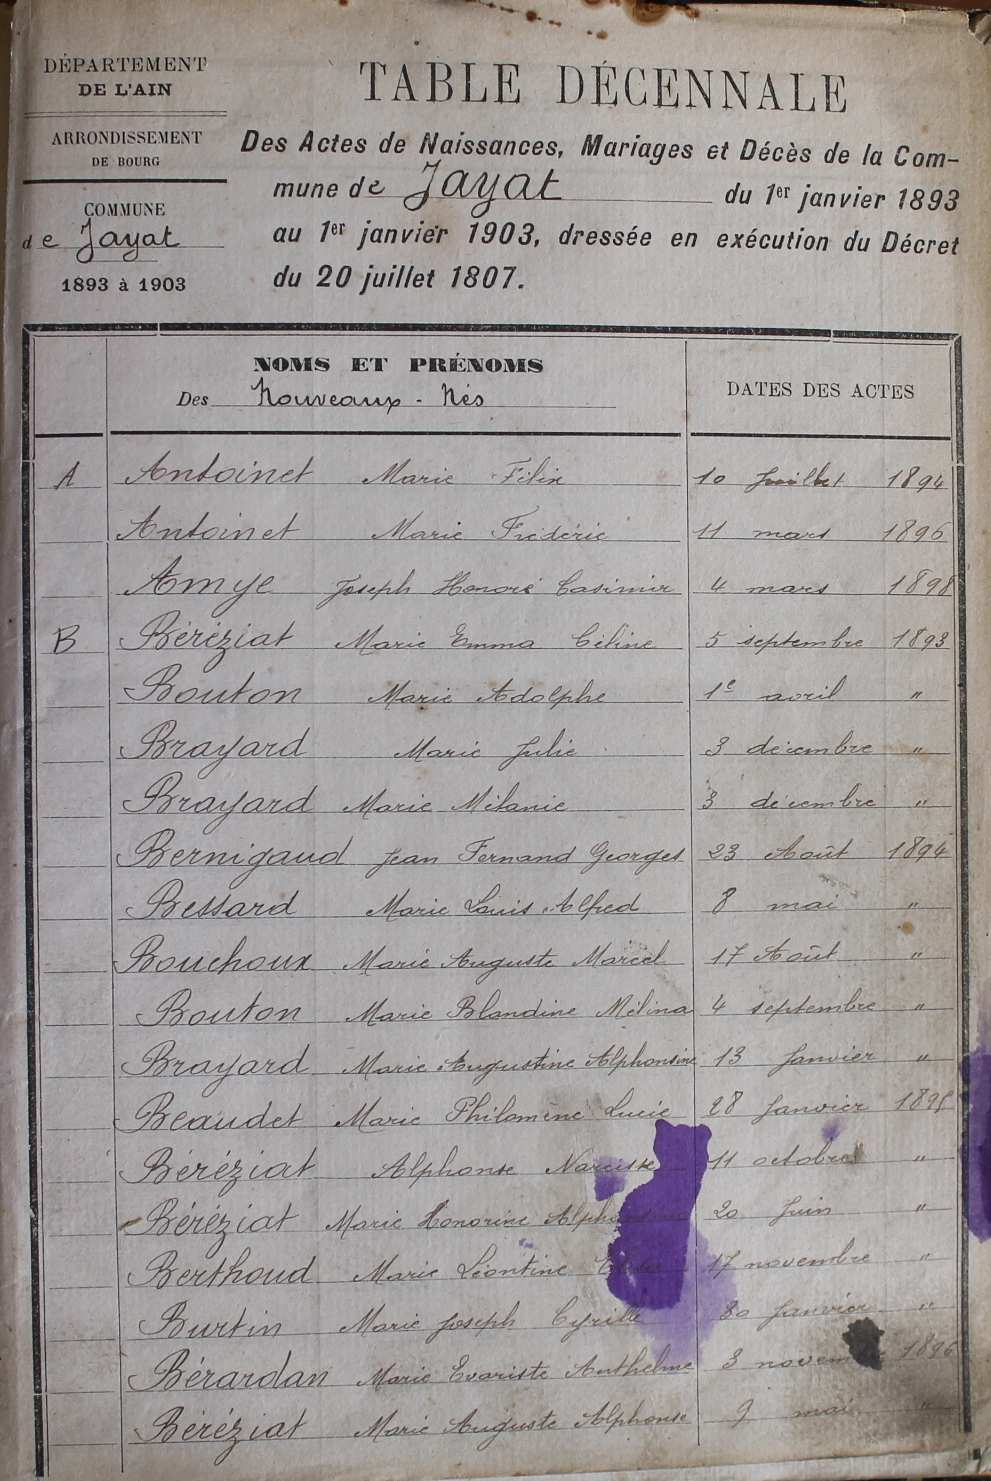 DÉPARTEMENT
DE L'AIN
ARRONDISSEMENT
DE BOURG
COMMUNE
de Jayat
1893 à 1903
TABLE DÉCENNALE
Des Actes de Naissances, Mariages et Décès de la Com-
mune de Jayat du 1er janvier 1893
au 1er janvier 1903, dressée en exécution du Décret
du 20 juillet 1807.
NOMS ET PRÉNOMS
Des Nouveaux-Nés
DATES DES ACTES
A Antoinet Marie Félix 10 Juillet 1894
Antoinet Marie Frédéric 11 mars 1896
Amye Joseph Honoré Casimir 4 mars 1898
B Béréziat Marie Emma Céline 5 septembre 1893
Bouton Marie Adolphe 1e avril "
Brayard Marie Julie 3 décembre "
Brayard Marie Mélanie 3 décembre "
Bernigaud Jean Fernand Georges 23 Août 1894
Bessard Marie Louis Alfred 8 mai "
Bouchoux Marie Auguste Marcel 17 Août "
Bouton Marie Blandine Mélina 4 septembre "
Brayard Marie Augustine Alphonsine 13 Janvier "
Beaudet Marie Philomène Lucie 28 Janvier 1895
Béréziat Alphonse Narcisse 11 octobre "
Béréziat Marie Honorine 20 Juin "
Berthoud Marie Léontine 17 novembre "
Burtin Marie Joseph Cyrille 30 Janvier "
Bérardan Marie Evariste Anthelme 3 novembre 1896
Béréziat Marie Auguste Alphonse 9 mai "